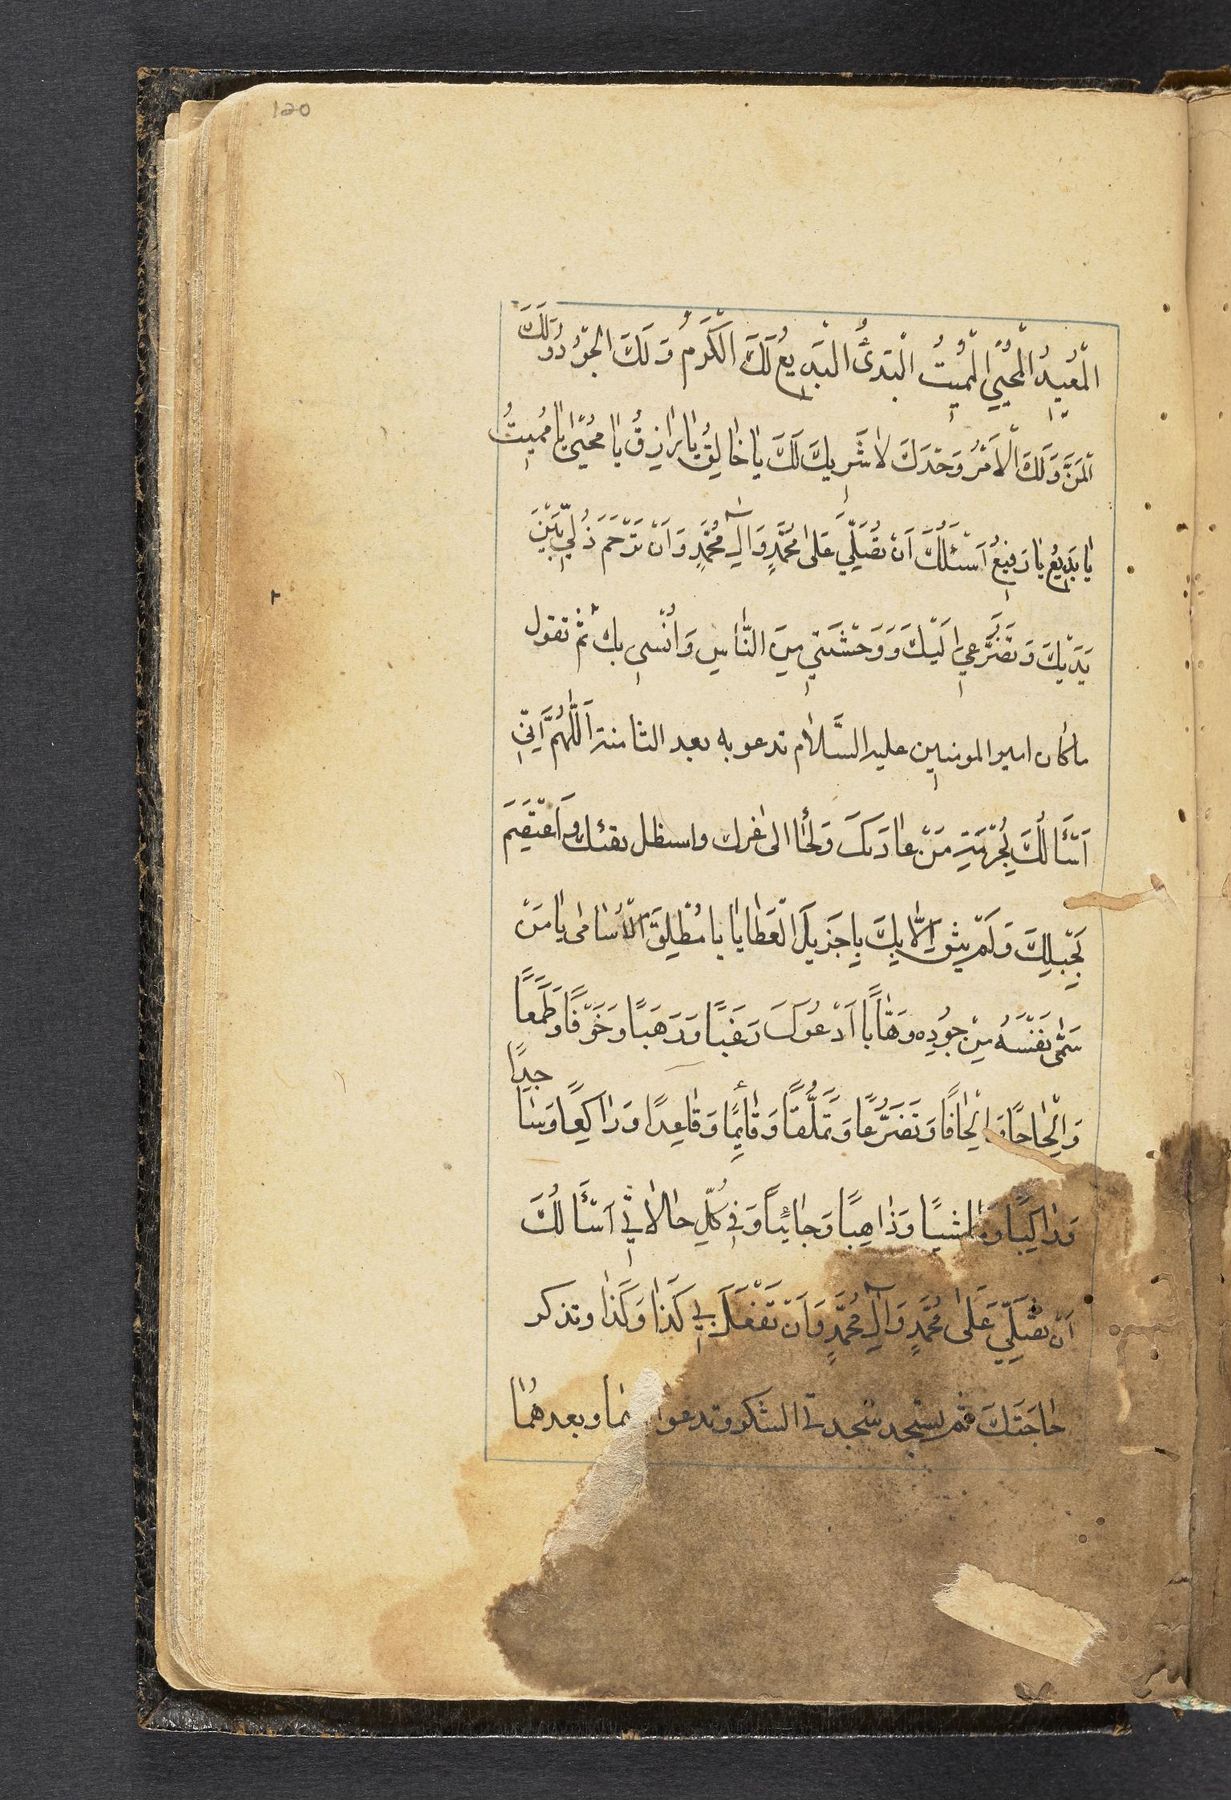 120
الْمُعِيدُ الْمُحْيِي الْمُمِيتُ الْبَدِىُّ الْبَدِيعُ لَكَ الْكَرَمُ وَلَكَ الْجُوْدُ وَلَكَ
الْمَنُّ وَلَكَ الْاَمْرُ وَحْدَكَ لَا شَرِيكَ لَكَ يَا خَالِقُ يَا رَازِقُ يَا مُحْيِي يَا مُمِيتُ
يَا بَدِيعُ يَا رَفِيعُ اَسْئَلُكَ اَنْ تُصَلِّيَ عَلَى مُحَمَّدٍ وَالِ مُحَمَّدٍ وَاَنْ تَرْحَمَ ذُلِّي بَيْنَ
يَدَيْكَ وَتَضَرُّعِي اِلَيْكَ وَوَحْشَتِي مِنَ النَّاسِ وَاُنْسِي بِكَ ثم تقول
ما كان امير المومنين عليه السَّلام تدعو به بعد الثامنة اَللّٰهُمَّ اِنِّي
اَسْاَلُكَ بِحُرْمَةِ مَنْ عَاذَ بِكَ وَلَجَأ الى عزك واستظل بفيئك وَاعْتَصَمَ
بِحَبْلِكَ وَلَمْ يَثِقْ اِلَّا بِكَ يَا جَزِيلَ الْعَطَايَا يَا مُطْلِقَ الْاُسَارى يَا مَنْ
سَمّٰى نَفْسَهُ مِنْ جُودِه وَهَّابًا اَدْعُوكَ رَغَبًا وَرَهَبًا وَخَوْفًا وَطَمَعًا
وَاِلْحَاحًا وَاِلْحَافًا وَتَضَرُّعًا وَتَمَلُّقًا وَقَائِمًا وَقَاعِدًا وَرَاكِعًا وَسَا
جدًا
وَرَاكِبًا وَمَاشِيًا وَذَاهِبًا وَجَائِيًا وَفِي كُلِّ حَالَاتِي اَسْاَلُكَ
اَنْ تُصَلِّيَ عَلَى مُحَمَّدٍ وَالِ مُحَمَّدٍ وَاَنْ تَفْعَلَ بِي كَذَا وَكَذَا وتذكر
حَاجَتَكَ ثم تسجد سجدتى الشكر وتدعوا وبعدهما